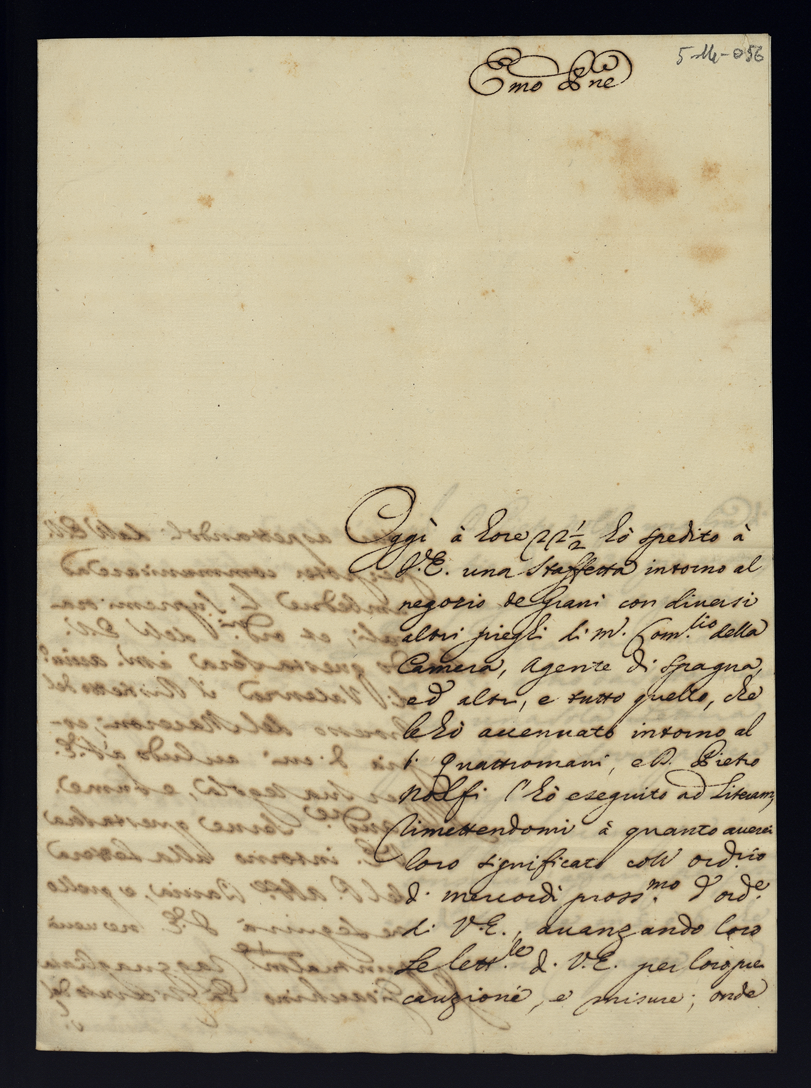 5-M-056
Emo Pne
Oggi à hore 22 1/2 hò spedito à
V.E. una Staffetta intorno al
negozio de Grani con diversi
altri pieghi di m. Com.rio della
Camera, Agente di Spagna,
ed altri, e tutto quello, che
le hò accennato intorno al
Quattromani, e D. Pietro
Nolfi l'hò eseguito ad Literam,
rimettendomi à quanto averei
loro significato coll' ord.rio
di mercordì pross.mo d'ord.e
di V.E., avanzando loro
le lett.re di V.E. per loro pre
cauzione, e misure; onde